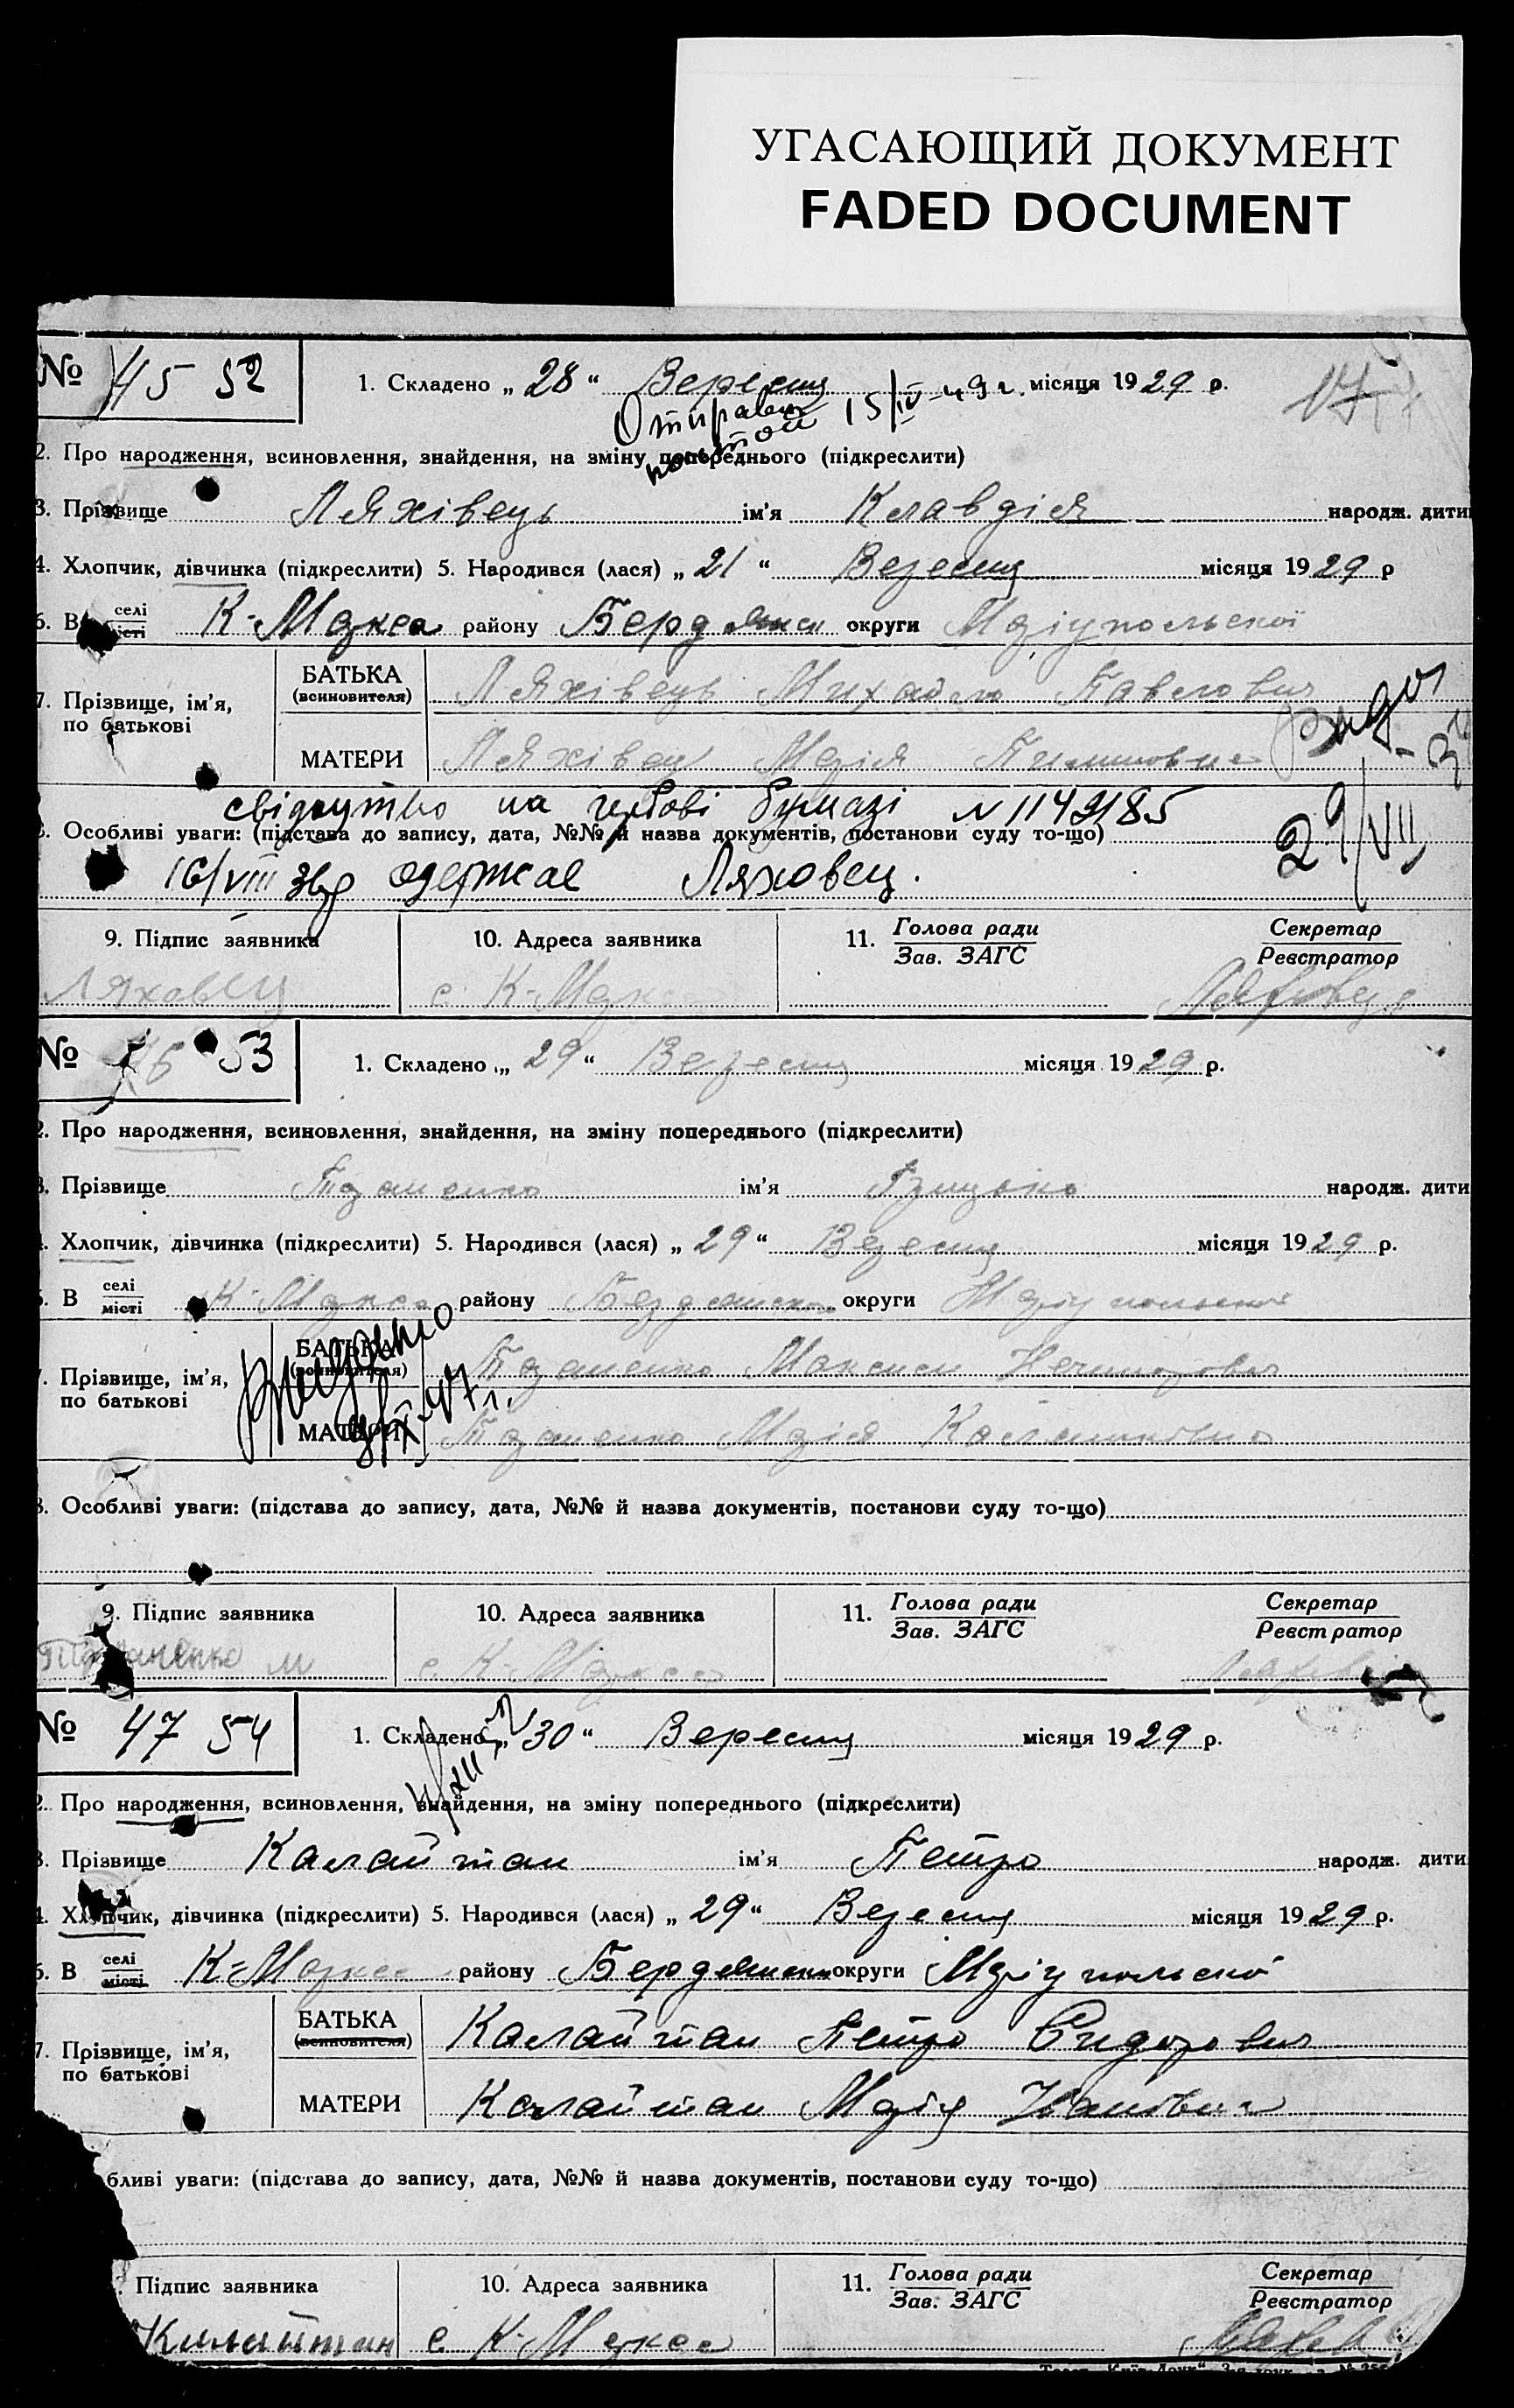 УГАСАЮЩИЙ ДОКУМЕНТ
FADED DOCUMENT
№ 45 52
1. Складено „ 28 “ Вересня місяця 1929 р.
Отправлен 15/IV-49 г.
почтой
2. Про народження, всиновлення, знайдення, на зміну попереднього (підкреслити)
3. Прізвище Ляхівець ім'я Клавдія народж. дити
4. Хлопчик, дівчинка (підкреслити) 5. Народився (лася) „ 21 “ Вересня місяця 1929 р
6. В селі місті К-Маркса району Бердянськ округи Маріупольської
7. Прізвище, ім'я, по батькові
БАТЬКА (всиновителя) Ляхівець Михайло Павлович
МАТЕРИ Ляхівець Марія
свідоцтво на гербові бумазі N 1142185
8. Особливі уваги: (підстава до запису, дата, №№ й назва документів, постанови суду то-що)
29/VII
16/VIII 36р одержав Ляховец.
9. Підпис заявника
10. Адреса заявника
11. Голова ради Зав. ЗАГС
Секретар Реєстратор
Ляховец
с. К-Маркса
№ 46 53
1. Складено „ 29 “ Вересня місяця 1929 р.
2. Про народження, всиновлення, знайдення, на зміну попереднього (підкреслити)
3. Прізвище ім'я Грицько народж. дити
Хлопчик, дівчинка (підкреслити) 5. Народився (лася) „ 29 “ Вересня місяця 1929 р.
В селі місті К-Маркса району Бердянськ округи Маріупольської
Прізвище, ім'я, по батькові
БАТЬКА (всиновителя) Максим
МАТЕРИ Марія
3. Особливі уваги: (підстава до запису, дата, №№ й назва документів, постанови суду то-що)
9. Підпис заявника
10. Адреса заявника
11. Голова ради Зав. ЗАГС
Секретар Реєстратор
с. К-Маркса
№ 47 54
1. Складено „ 30 “ Вересня місяця 1929 р.
2. Про народження, всиновлення, знайдення, на зміну попереднього (підкреслити)
3. Прізвище Калайтан ім'я Петро народж. дити
4. Хлопчик, дівчинка (підкреслити) 5. Народився (лася) „ 29 “ Вересня місяця 1929 р.
6. В селі місті К-Маркса району Бердянськ округи Маріупольської
7. Прізвище, ім'я, по батькові
БАТЬКА (всиновителя) Калайтан Петро Сидорович
МАТЕРИ Калайтан Марія Іванівна
бливі уваги: (підстава до запису, дата, №№ й назва документів, постанови суду то-що)
Підпис заявника
10. Адреса заявника
11. Голова ради Зав. ЗАГС
Секретар Реєстратор
Калайтан
с К-Маркса